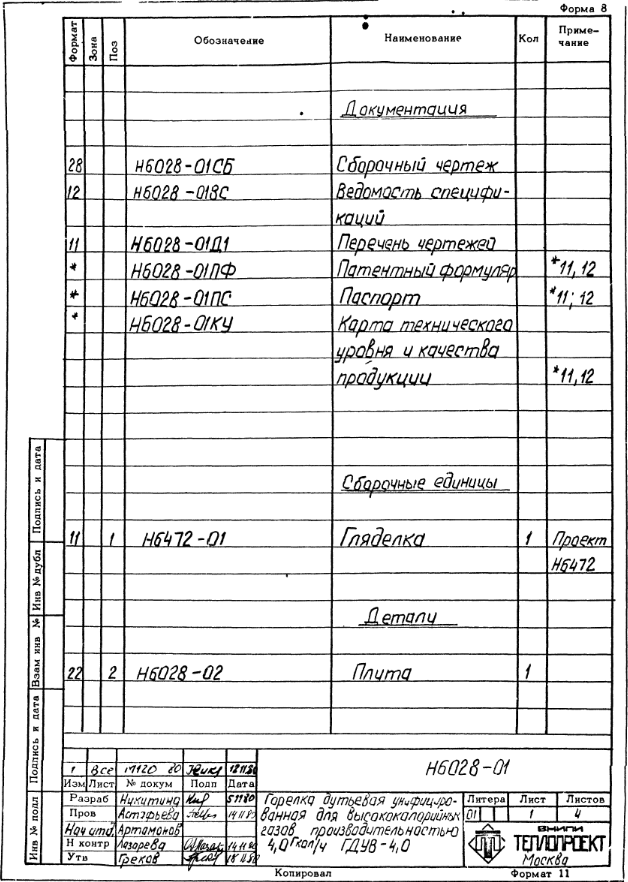 Форма 8
Формат Зона Поз Обозначение Наименование Кол Приме-
чание
Документация
28 Н6028-01СБ Сборочный чертеж
12 Н6028-01ВС Ведомость специфи-
каций
11 Н6028-01Д1 Перечень чертежей
* Н6028-01ПФ Патентный формуляр *11, 12
* Н6028-01ПС Паспорт *11; 12
* Н6028-01КУ Карта технического
уровня и качества
продукции *11, 12
Сборочные единицы
11 1 Н6472-01 Гляделка 1 Проект
Н6472
Детали
22 2 Н6028-02 Плита 1
Подпись и дата
Инв № дубл
Взам инв №
Подпись и дата
Инв № подл
1 Все 80
Изм Лист № докум Подп Дата
Н6028-01
Разраб Никитина 51180
Пров Астафьева
Нач отд. Артамонов
Н контр Лазарева
Утв Греков
Горелка дутьевая унифициро-
ванная для высококалорийных
газов производительностью
4,0 Гкал/ч ГДУВ-4,0
Литера Лист Листов
01 1 4
ВНИПИ
ТЕПЛОПРОЕКТ
Москва
Копировал Формат 11